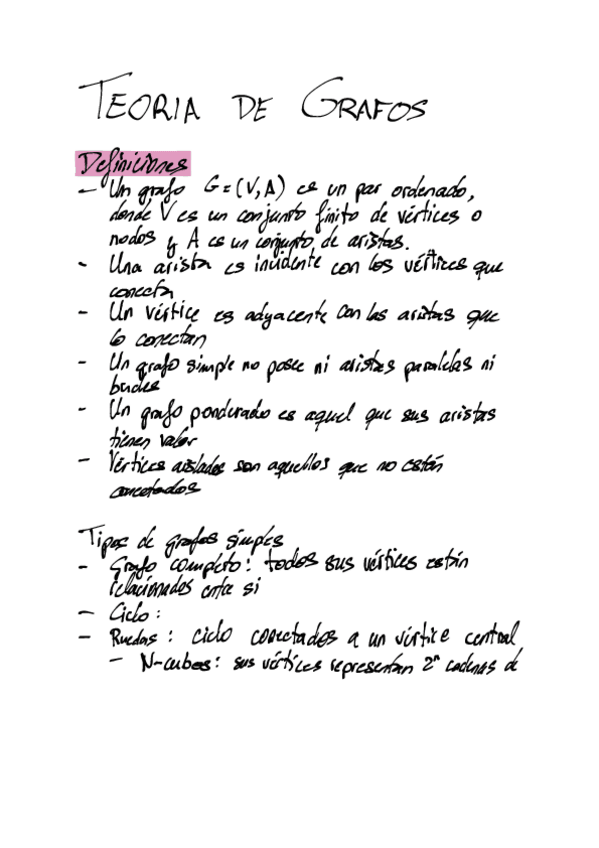 TEORIA DE GRAFOS
Definiciones
- Un grafo G=(V,A) es un par ordenado,
donde V es un conjunto finito de vértices o
nodos y A es un conjunto de aristas.
- Una arista es incidente con los vértices que
conecta
- Un vértice es adyacente con las aristas que
lo conectan
- Un grafo simple no posee ni aristas paralelas ni
bucles
- Un grafo ponderado es aquel que sus aristas
tienen valor
- Vértices aislados son aquellos que no están
conectados
Tipos de grafos simples
- Grafo completo: todos sus vértices están
relacionados entre si
- Ciclo:
- Ruedas: ciclo conectados a un vértice central
- N-cubos: sus vértices representan 2ⁿ cadenas de